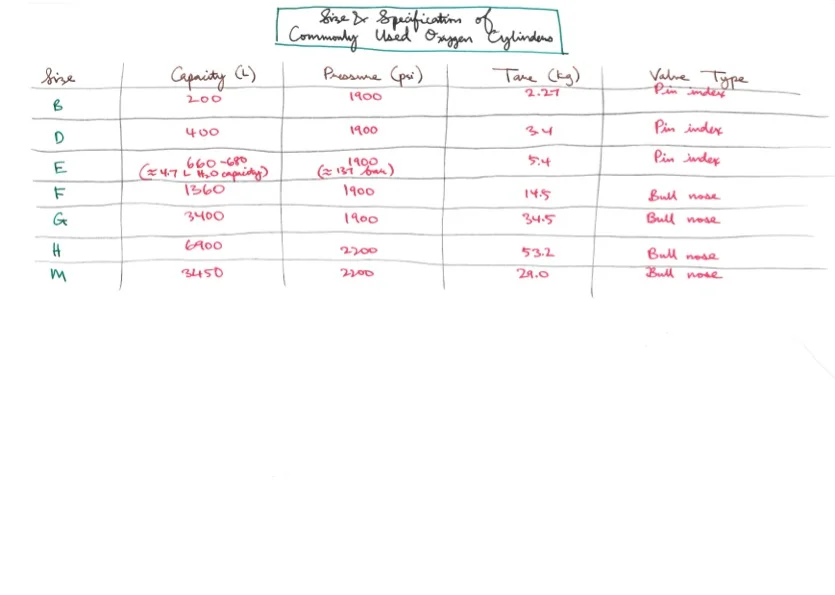 Size & Specification of
Commonly Used Oxygen Cylinders
Size Capacity (L) Pressure (psi) Tare (kg) Valve Type
B 200 1900 2.27 Pin index
D 400 1900 3.4 Pin index
E 660-680 1900 5.4 Pin index
(≈ 4.7 L H2O capacity) (≈ 137 bar)
F 1360 1900 14.5 Bull nose
G 3400 1900 34.5 Bull nose
H 6900 2200 53.2 Bull nose
M 3450 2200 29.0 Bull nose